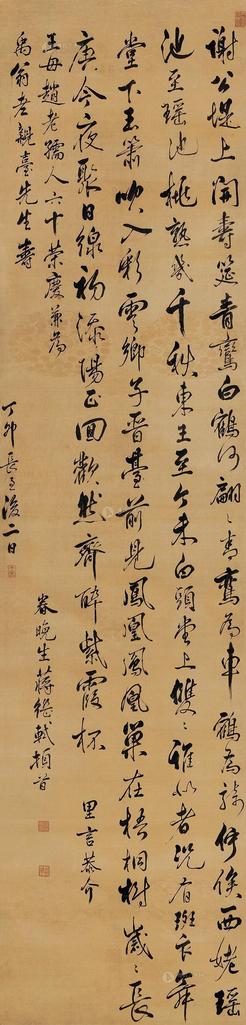 谢公堤上開壽筵青鸞白鶴何翩〻青鸞為車鶴為騎伊侯西姥瑶
池至瑶池桃熟幾千秋東王至今未白頭堂上雙〻誰似者況有斑衣舞
堂下玉簫吹入彩雲鄉子晉臺前見鳳凰鳳凰巢在梧桐樹歲〻長
庚今夜聚日線初添陽正回歡然齊醉紫霞杯 里言恭介
王母趙老孺人六十榮慶兼為
禹翁老親臺先生壽
丁卯長至後二日
眷晚生蔣繼軾頓首